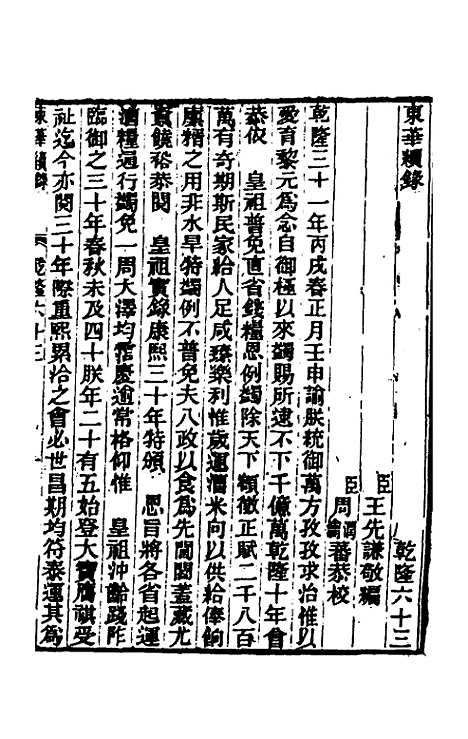 東華續錄　乾隆六十三
臣王先謙敬編
臣周潤蕃恭校
乾隆三十一年丙戌春正月壬申諭朕統御萬方孜孜求治惟以
愛育黎元爲念自御極以來蠲賜所逮不下千億萬乾隆十年會
恭依　皇祖普免直省錢糧恩例蠲除天下額徵正賦二千八百
萬有奇期斯民家給人足咸臻樂利惟歲運漕米向以供給俸餉
廩糈之用非水旱特蠲例不普免夫八政以食爲先閭閻蓋藏尤
資饒裕恭閱　皇祖實錄康熙三十年特頒　恩旨將各省起運
漕糧逓行蠲免一周大澤均霑慶逾常格仰惟　皇祖沖齡踐阼
臨御之三十年春秋未及四十朕年二十有五始登大寶膺祺受
祉迄今亦閱三十年際重熙累洽之會必世昌期均符泰運其爲
東華續錄　乾隆六十三